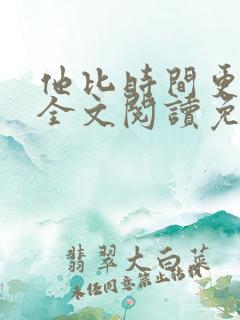 他比時間更
全文閱讀免
翡翠大白菜
未經同意禁止轉載